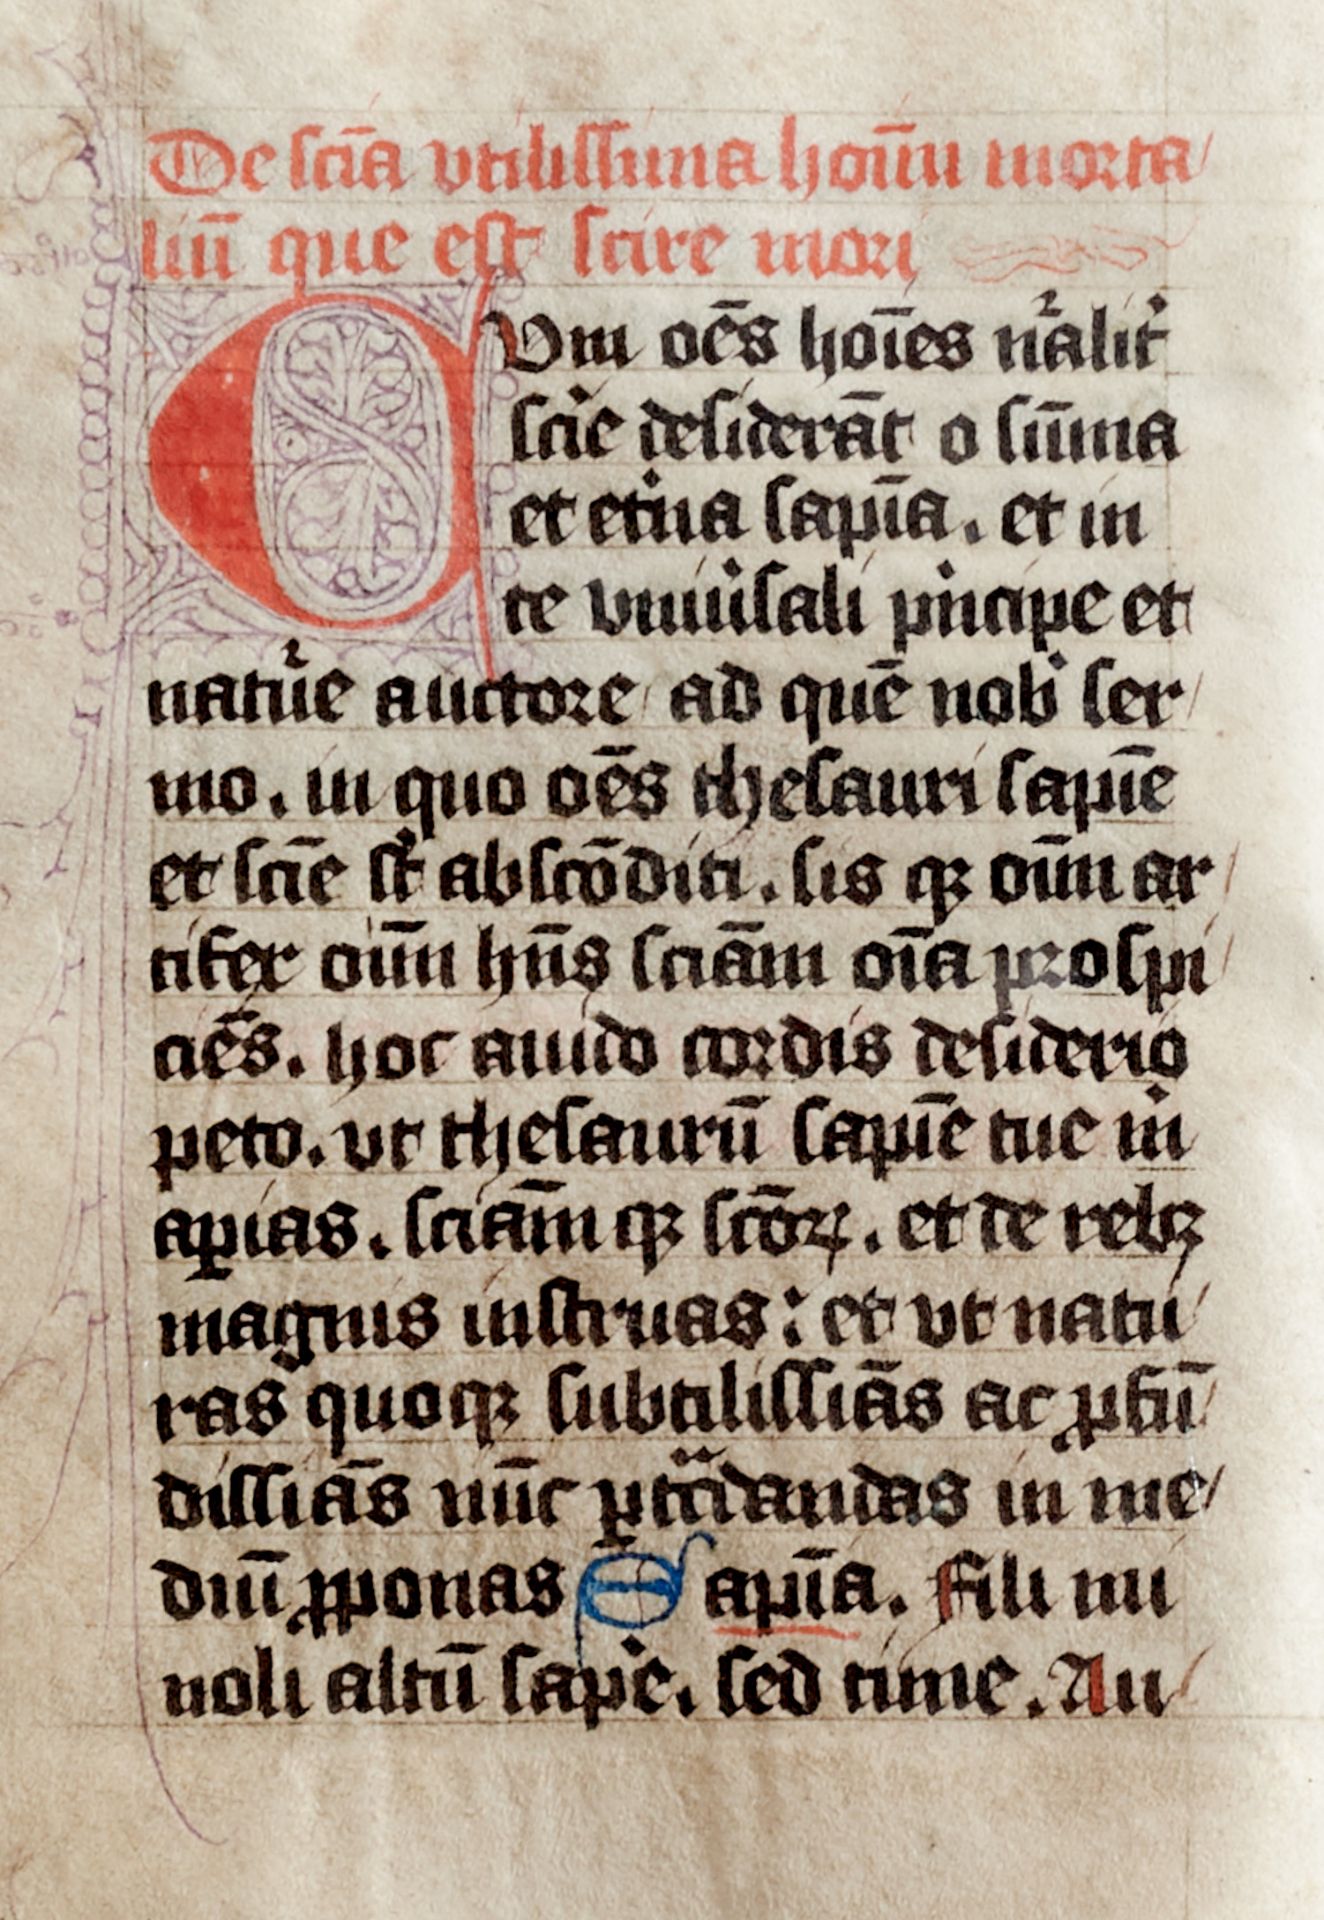 De sciā vtilissima hoīm morta
liū que est scire mori
Cum oēs hoīes nr̄alit͛
sci͛e desiderāt o sūma
et et͛na sapīa. et in
te vniu͛sali pͥncipe et
natur̄e auctore ad quē nob̾ ser
mo. in quo oēs thesauri sapīe
et scīe st̄ abscōditi. sis qꝫ oīm ar
tifex oīm hn̄s sciām oīa prospi
ciēs. hoc auido cordis desiderio
peto. vt thesaurū sapīe tue m͛
aꝑias. sciām̄ qꝫ scōꝝ. et de rebꝫ
magnis instruas : et vt natu
ras quoqꝫ subtilissiās ac ꝓfū
dissiās nūc ꝑtᷓctandas in me
diū ꝓponas Sapīa. Fili mi
noli altū sap͛e. sed time. Au